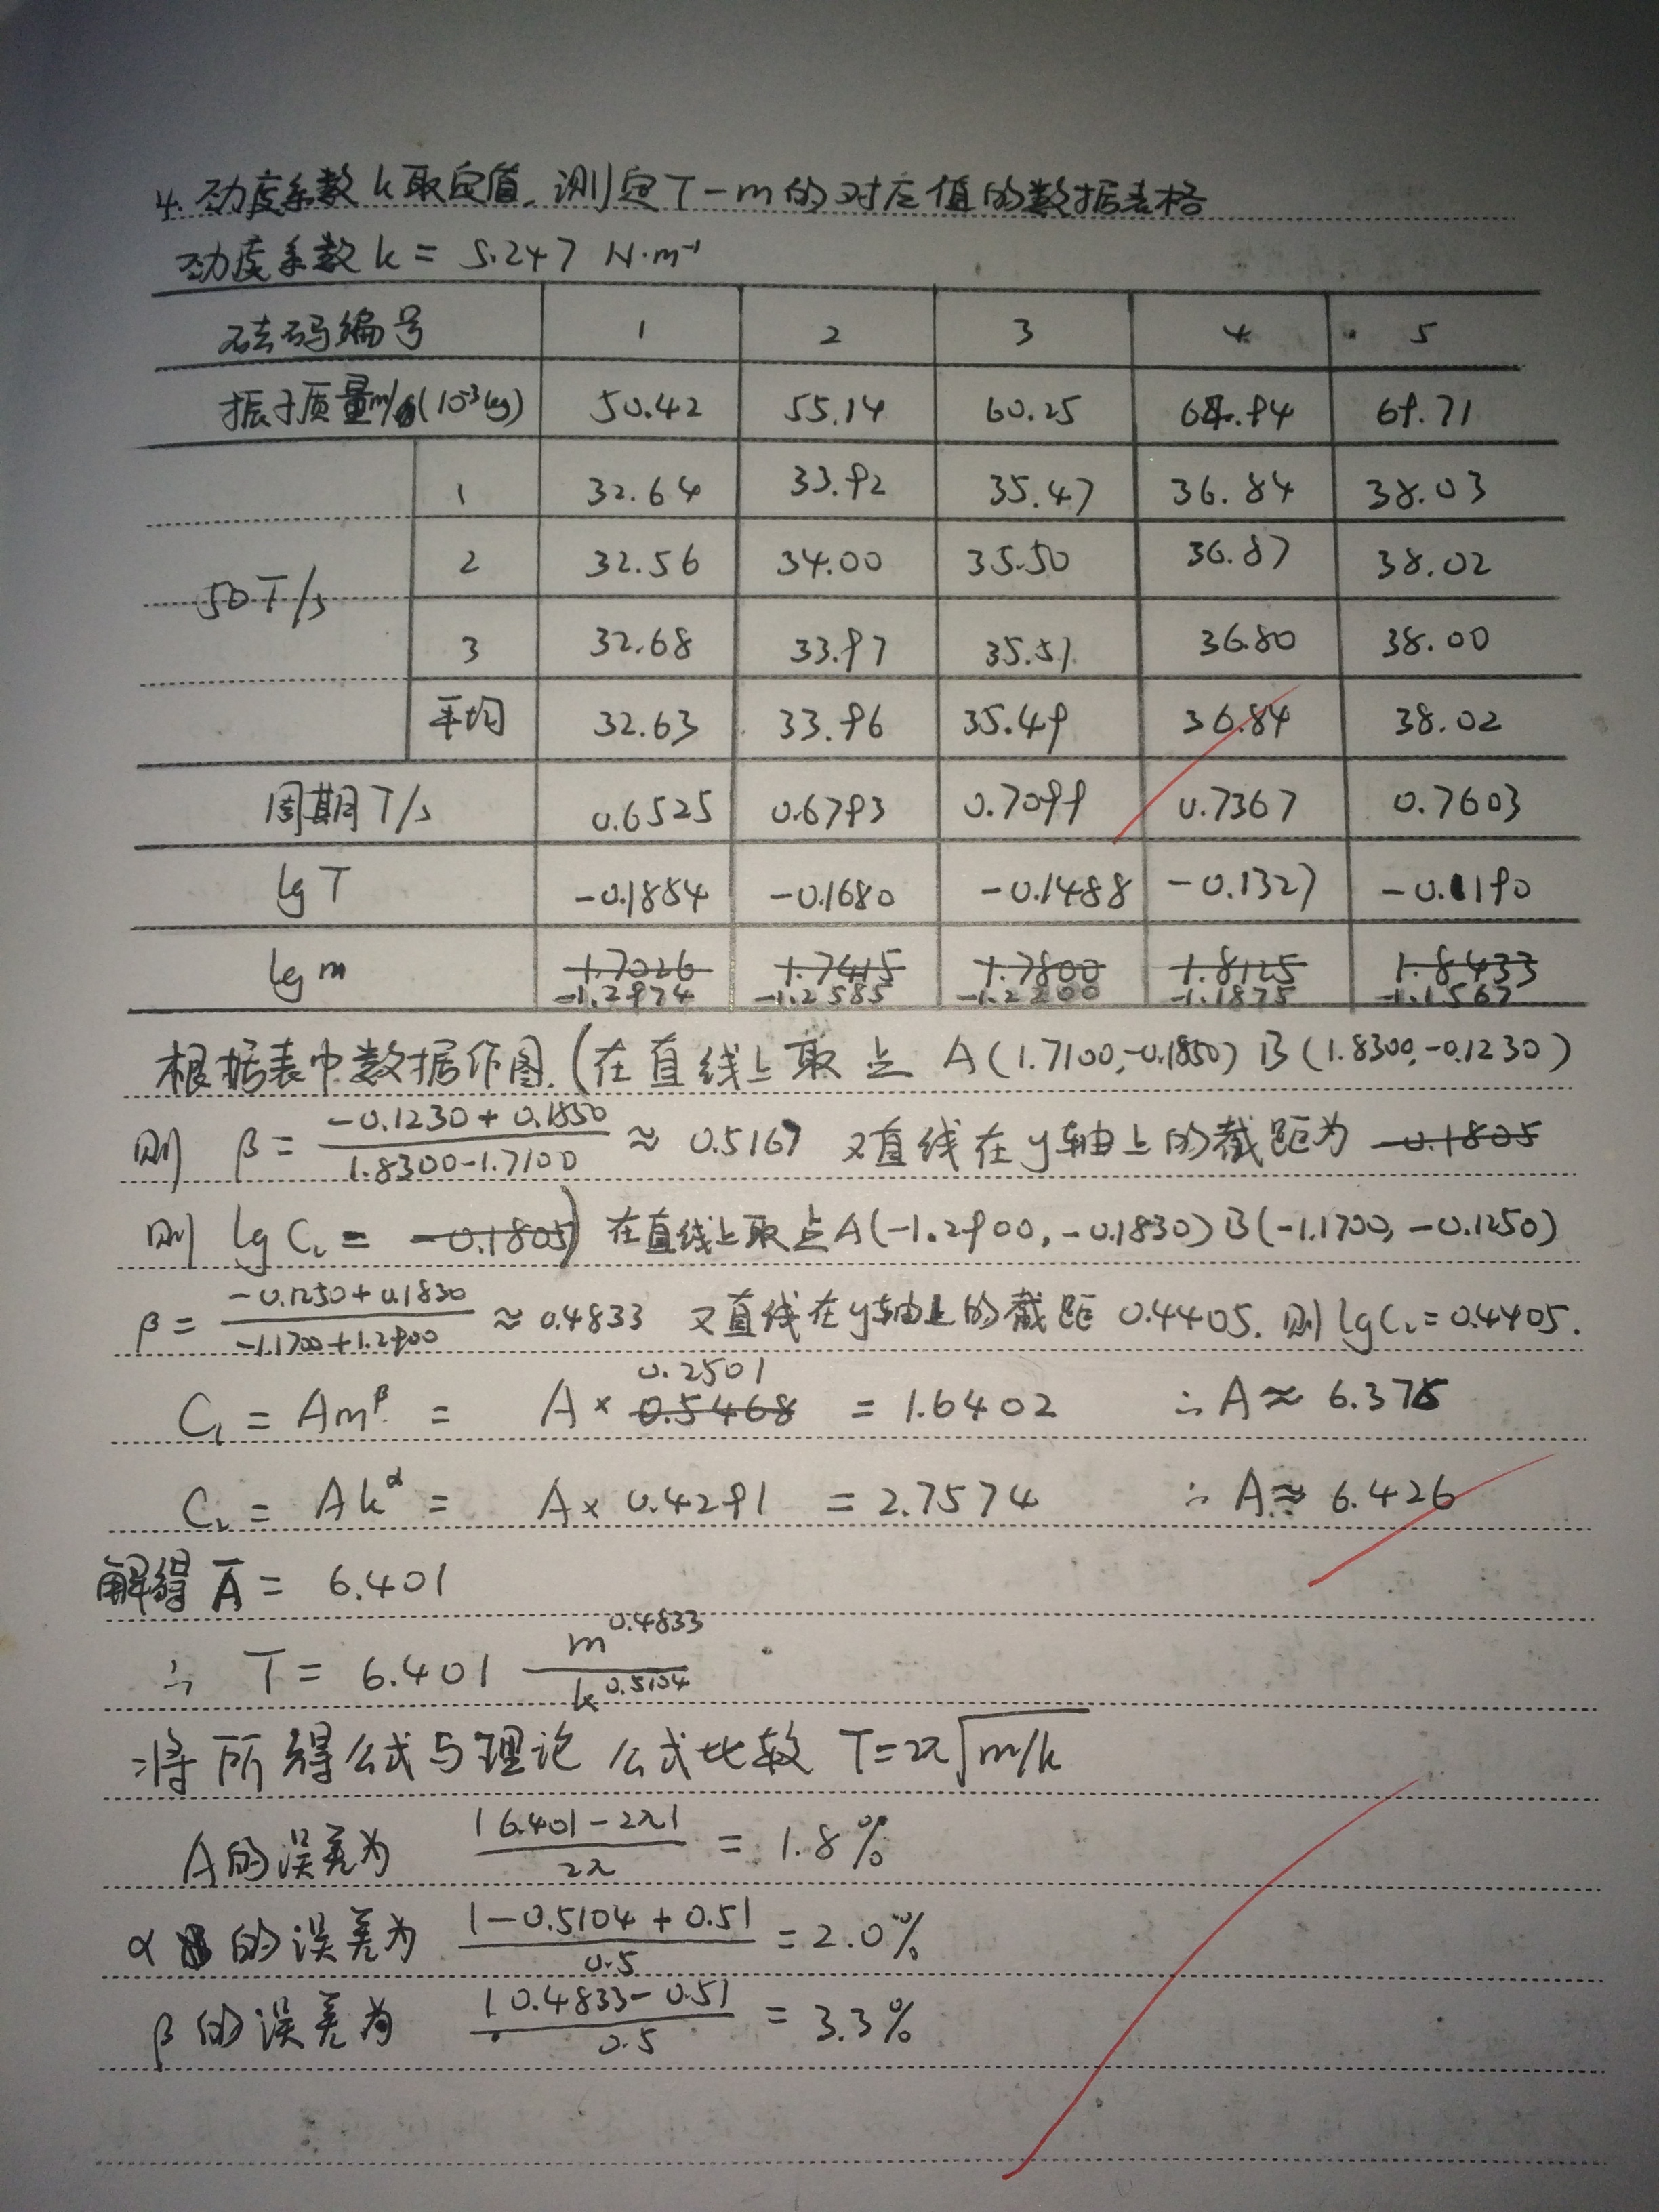 4. 劲度系数k取定值，测定T-m的对应值的数据表格
劲度系数 k = 5.247 N·m⁻¹
砝码编号 1 2 3 4 5
振子质量m/(10⁻³kg) 50.42 55.14 60.25 64.94 69.71
1 32.64 33.92 35.47 36.84 38.03
50T/s 2 32.56 34.00 35.50 36.87 38.02
3 32.68 33.97 35.51 36.80 38.00
平均 32.63 33.96 35.49 36.84 38.02
周期T/s 0.6525 0.6793 0.7099 0.7367 0.7603
lgT -0.1854 -0.1680 -0.1488 -0.1327 -0.1190
lgm 1.7026 1.7415 1.7800 1.8125 1.8433
-1.2974 -1.2585 -1.2200 -1.1875 -1.1567
根据表中数据作图.(在直线上取点 A(1.7100,-0.1850) B(1.8300,-0.1230)
则 β = (-0.1230+0.1850)/(1.8300-1.7100) ≈ 0.5167 又直线在y轴上的截距为 -0.1805
则 lgC₂ = -0.1805) 在直线上取点A(-1.2900,-0.1830) B(-1.1700,-0.1250)
β = (-0.1250+0.1830)/(-1.1700+1.2900) ≈ 0.4833 又直线在y轴上的截距 0.4405. 则 lgC₂=0.4405.
0.2501
C₁ = Amᵝ = A × 0.5468 = 1.6402 ∴ A ≈ 6.375
C₂ = Akᵅ = A × 0.4291 = 2.7574 ∴ A ≈ 6.426
解得 Ā = 6.401
∴ T = 6.401 m^0.4833/k^0.5104
将所得公式与理论公式比较 T=2π√m/k
A的误差为 |6.401-2π|/2π = 1.8%
α的误差为 |-0.5104+0.5|/0.5 = 2.0%
β的误差为 |0.4833-0.5|/0.5 = 3.3%